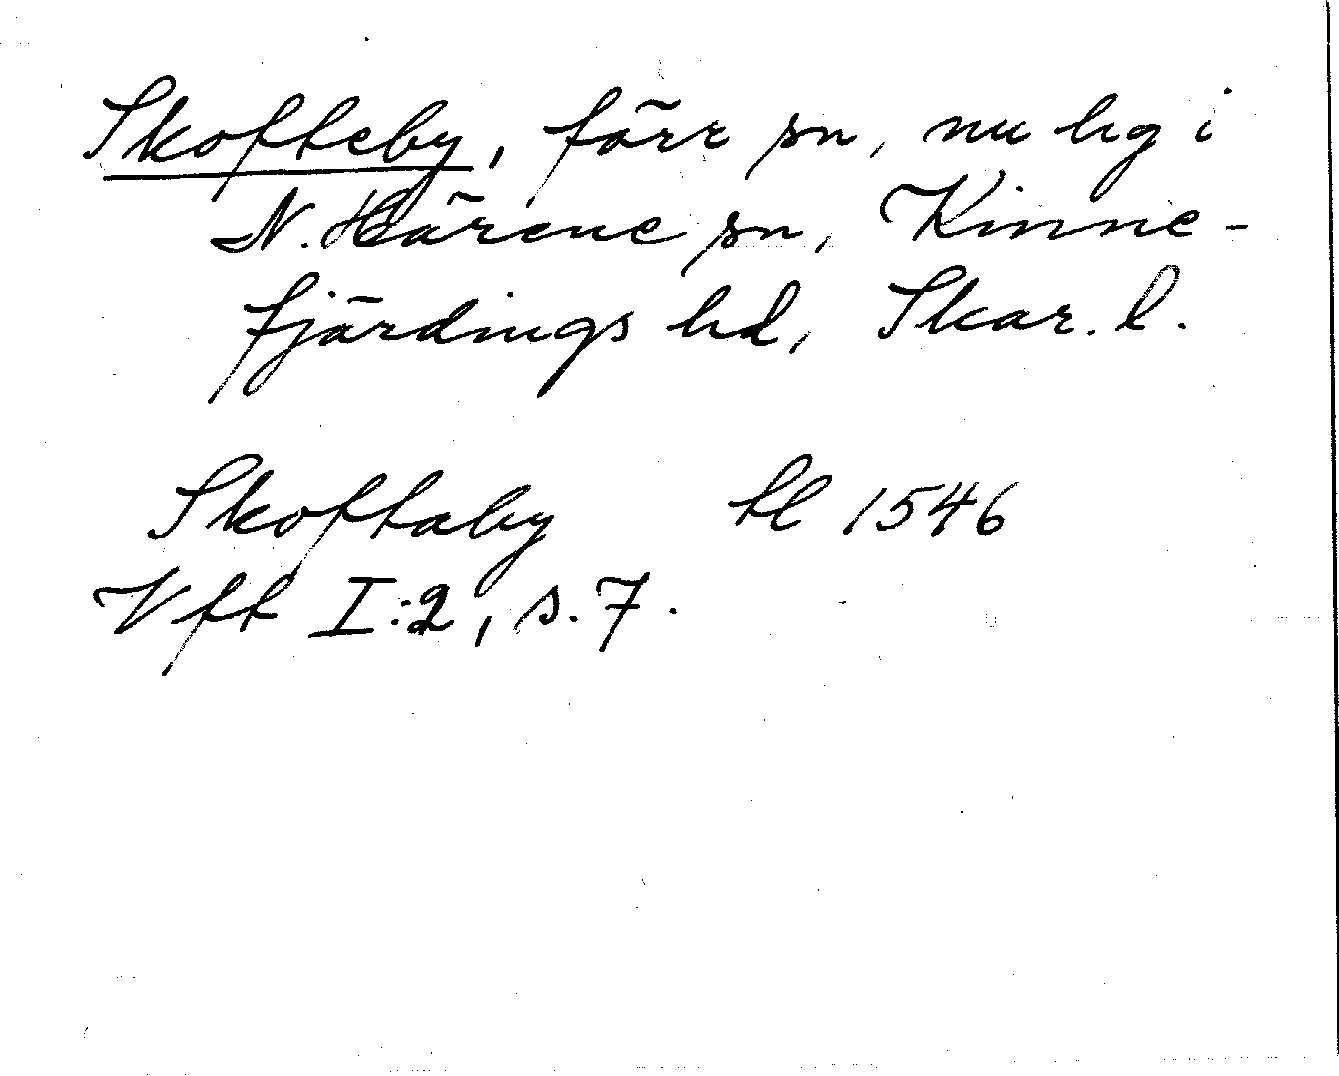 Skofteby, förr sn, nu hg i
N. Härene sn, Kinne-
fjärdings hd, Skar. l.
Skoftaby tl 1546
Vft I:2, s. 7.